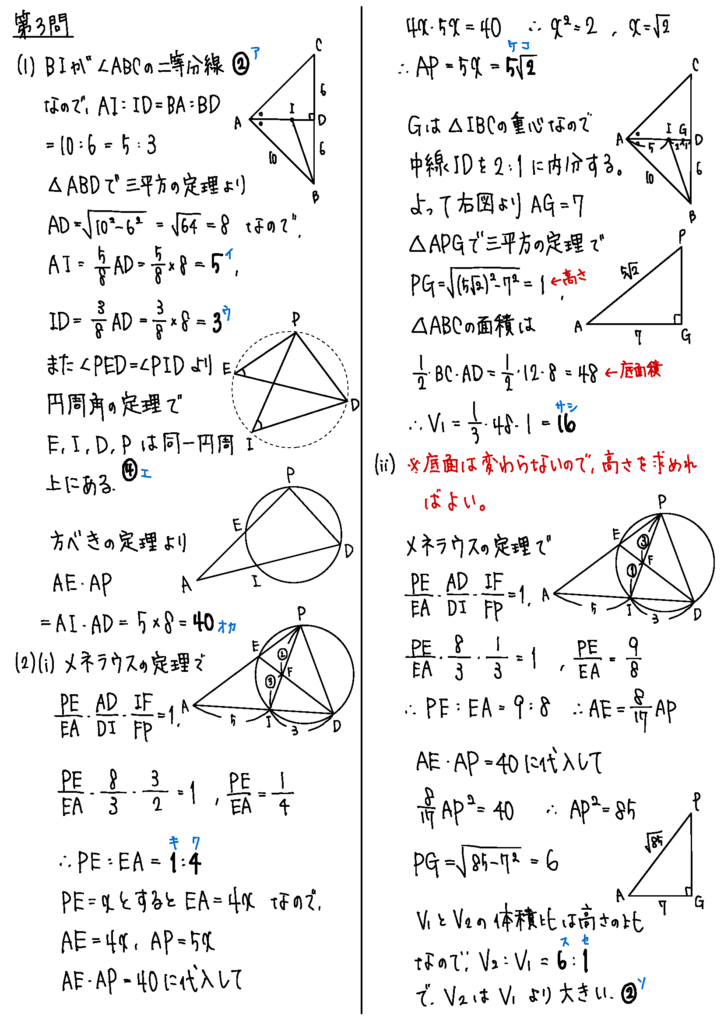 第3問
(1) BIが∠ABCの二等分線 ② ア
なので, AI:ID=BA:BD
=10:6=5:3
△ABDで三平方の定理より
AD=√(10²-6²) = √64 = 8 なので,
AI = 5/8 AD = 5/8 × 8 = 5 イ,
ID = 3/8 AD = 3/8 × 8 = 3 ウ
また∠PED=∠PID より
円周角の定理で
E, I, D, P は同一円周
上にある. ④ エ
方べきの定理より
AE・AP
=AI・AD = 5×8 = 40 オカ
(2)(i) メネラウスの定理で
PE/EA・AD/DI・IF/FP=1,
PE/EA・8/3・3/2=1 , PE/EA=1/4
キ ク
∴PE:EA=1:4
PE=xとするとEA=4x なので,
AE=4x, AP=5x
AE・AP=40に代入して
C
6
A I D
10 6
B
P
E
D
I
P
E
D
A I
P
E ②
F
③
A 5 I 3 D
4x・5x=40 ∴x²=2 , x=√2
ケコ
∴AP=5x=5√2
Gは△IBCの重心なので
中線IDを2:1に内分する。
よって右図より AG=7
△APGで三平方の定理で
PG=√((5√2)²-7²)=1 ←高さ
,
△ABCの面積は
1/2・BC・AD=1/2・12・8=48 ←底面積
サシ
∴V₁=1/3・48・1=16
(ii) ※底面は変わらないので, 高さを求めれ
ばよい。
メネラウスの定理で
PE/EA・AD/DI・IF/FP=1,
PE/EA・8/3・1/3=1 , PE/EA=9/8
∴PE:EA=9:8 ∴AE=8/17 AP
AE・AP=40に代入して
8/17 AP²=40 ∴AP²=85
PG=√(85-7²)=6
V₁とV₂の体積比は高さの比
ス セ
なので, V₂:V₁=6:1
で, V₂はV₁より大きい. ② ソ
C
6
A I G D
5 2 1
10 6
B
P
5√2
A 7 G
P
E ③
F
①
A 5 I 3 D
P
√85
A 7 G